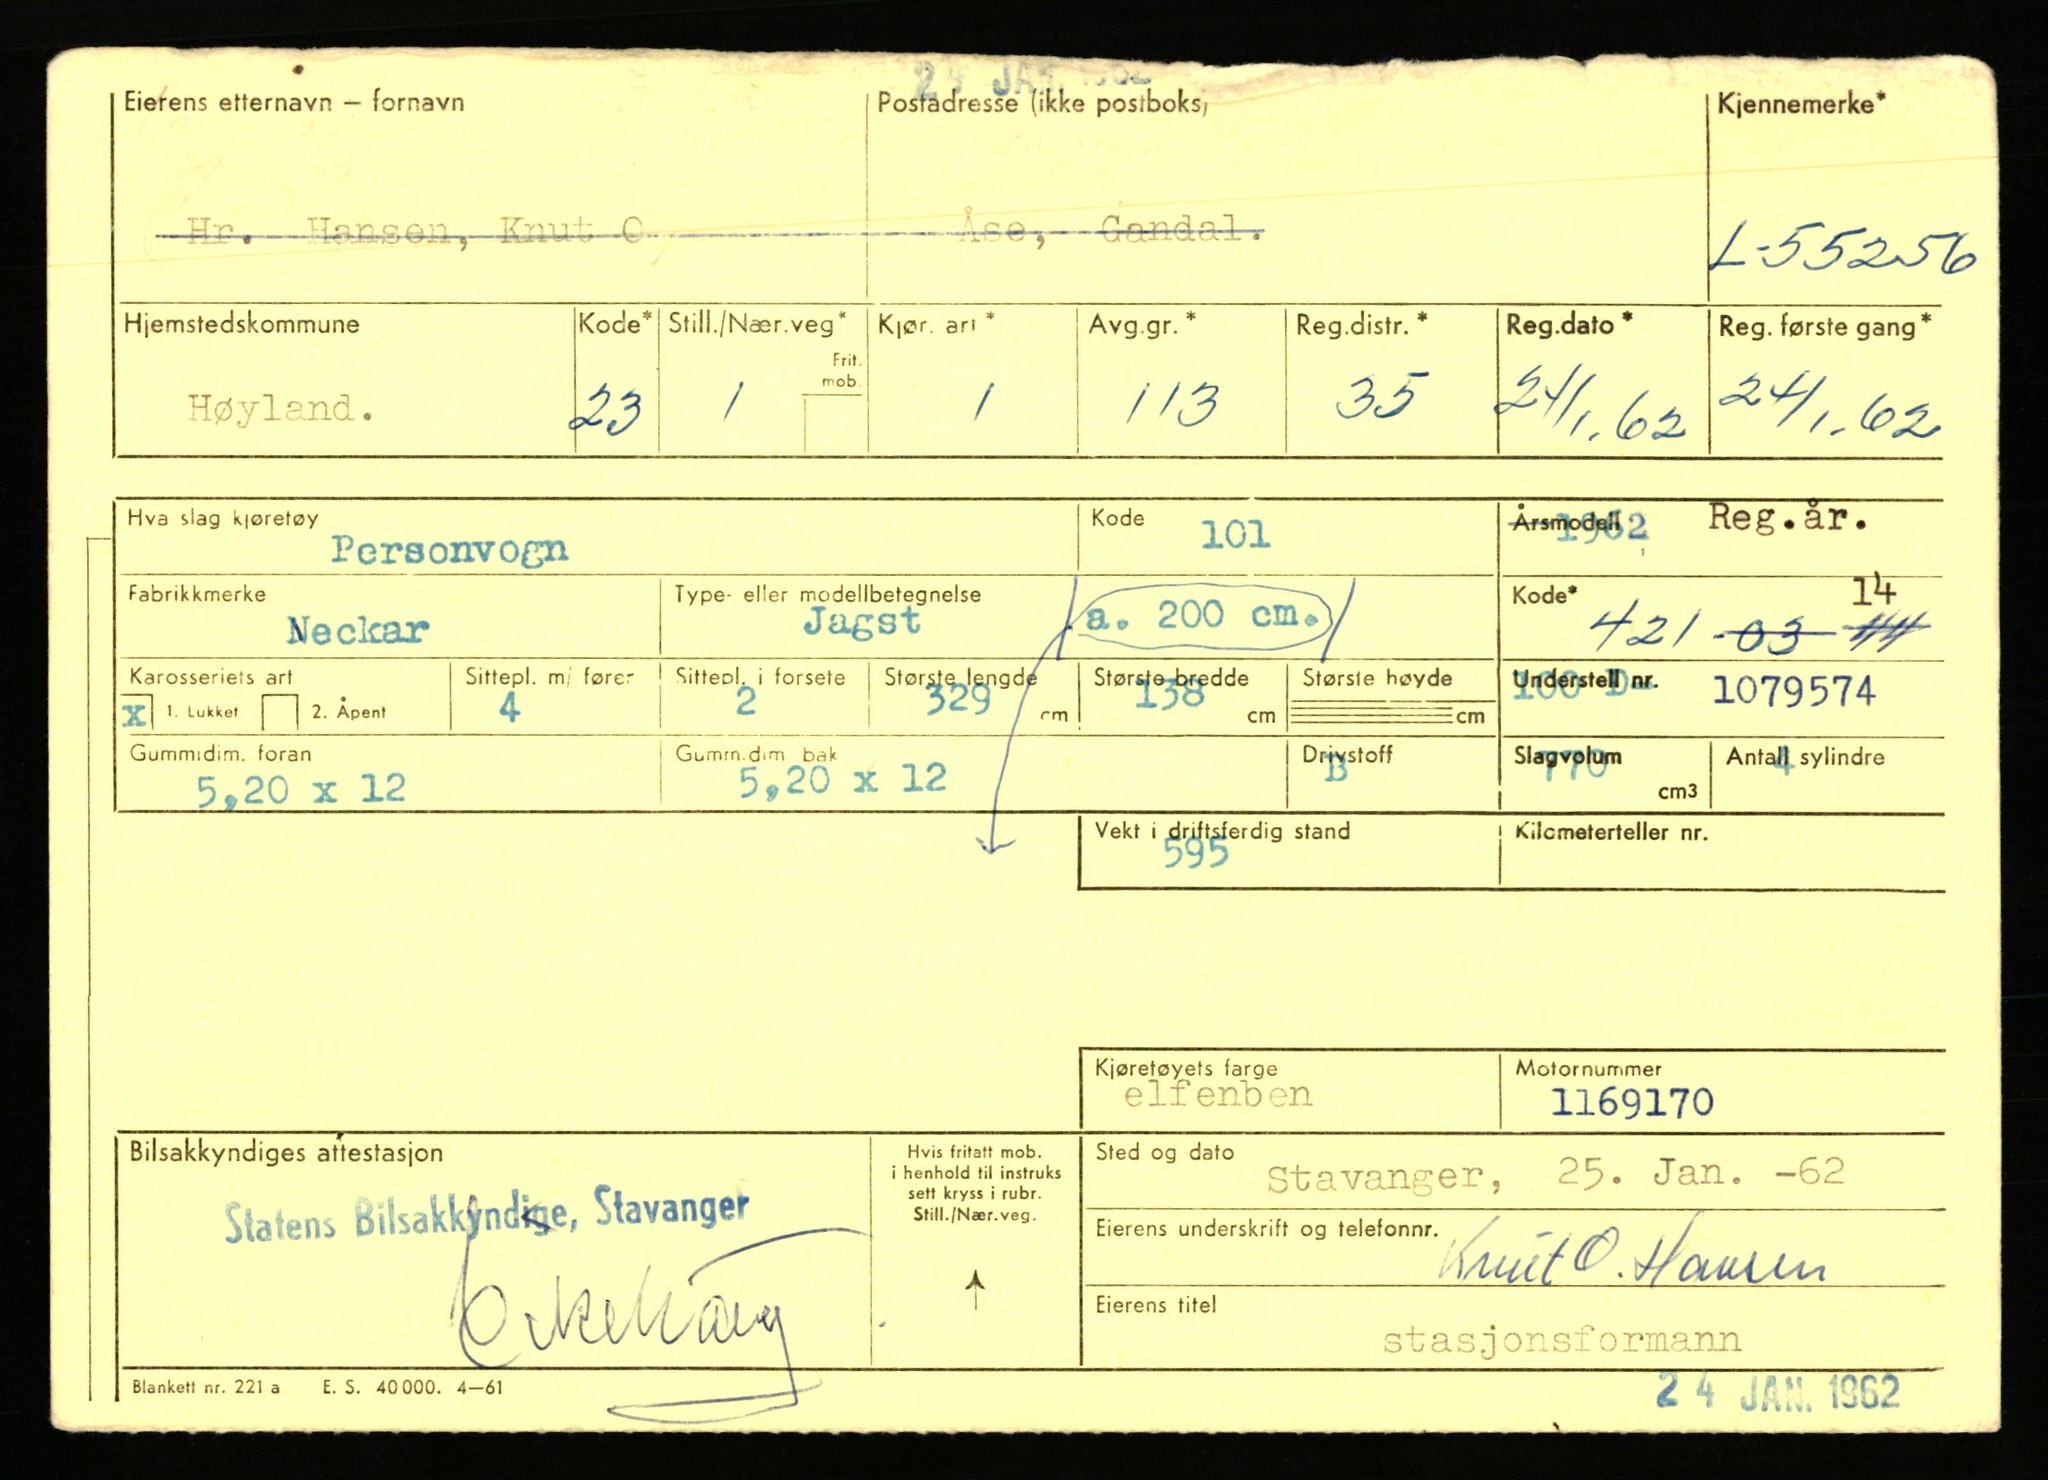 24 JAN 1962
Eierens etternavn – fornavn Postadresse (ikke postboks) Kjennemerke*
Hr. Hansen, Knut O Åse, Gandal. L-55256
Hjemstedskommune Kode* Still./Nær.veg* Kjør. art* Avg.gr.* Reg.distr.* Reg.dato* Reg. første gang*
Frit. mob.
Høyland. 23 1 1 113 35 24/1.62 24/1.62
Hva slag kjøretøy Kode Årsmodell Reg.år.
Personvogn 101 1962
Fabrikkmerke Type- eller modellbetegnelse Kode* 14
Neckar Jagst a. 200 cm. 421 03 44
Karosseriets art Sittepl. m/ fører Sittepl. i forsete Største lengde Største bredde Største høyde Understell nr.
x 1. Lukket 2. Åpent 4 2 329 cm 138 cm cm 100 D- 1079574
Gummidim. foran Gummidim bak Drivstoff Slagvolum Antall sylindre
5,20 x 12 5,20 x 12 B 770 cm3 4
Vekt i driftsferdig stand Kilometerteller nr.
595
Kjøretøyets farge Motornummer
elfenben 1169170
Bilsakkyndiges attestasjon
Statens Bilsakkyndige, Stavanger
Hvis fritatt mob.
i henhold til instruks
sett kryss i rubr.
Still./Nær.veg.
Sted og dato
Stavanger, 25. Jan. -62
Eierens underskrift og telefonnr.
Knut O. Hansen
Eierens titel
stasjonsformann
Blankett nr. 221 a E. S. 40 000. 4–61
24 JAN. 1962